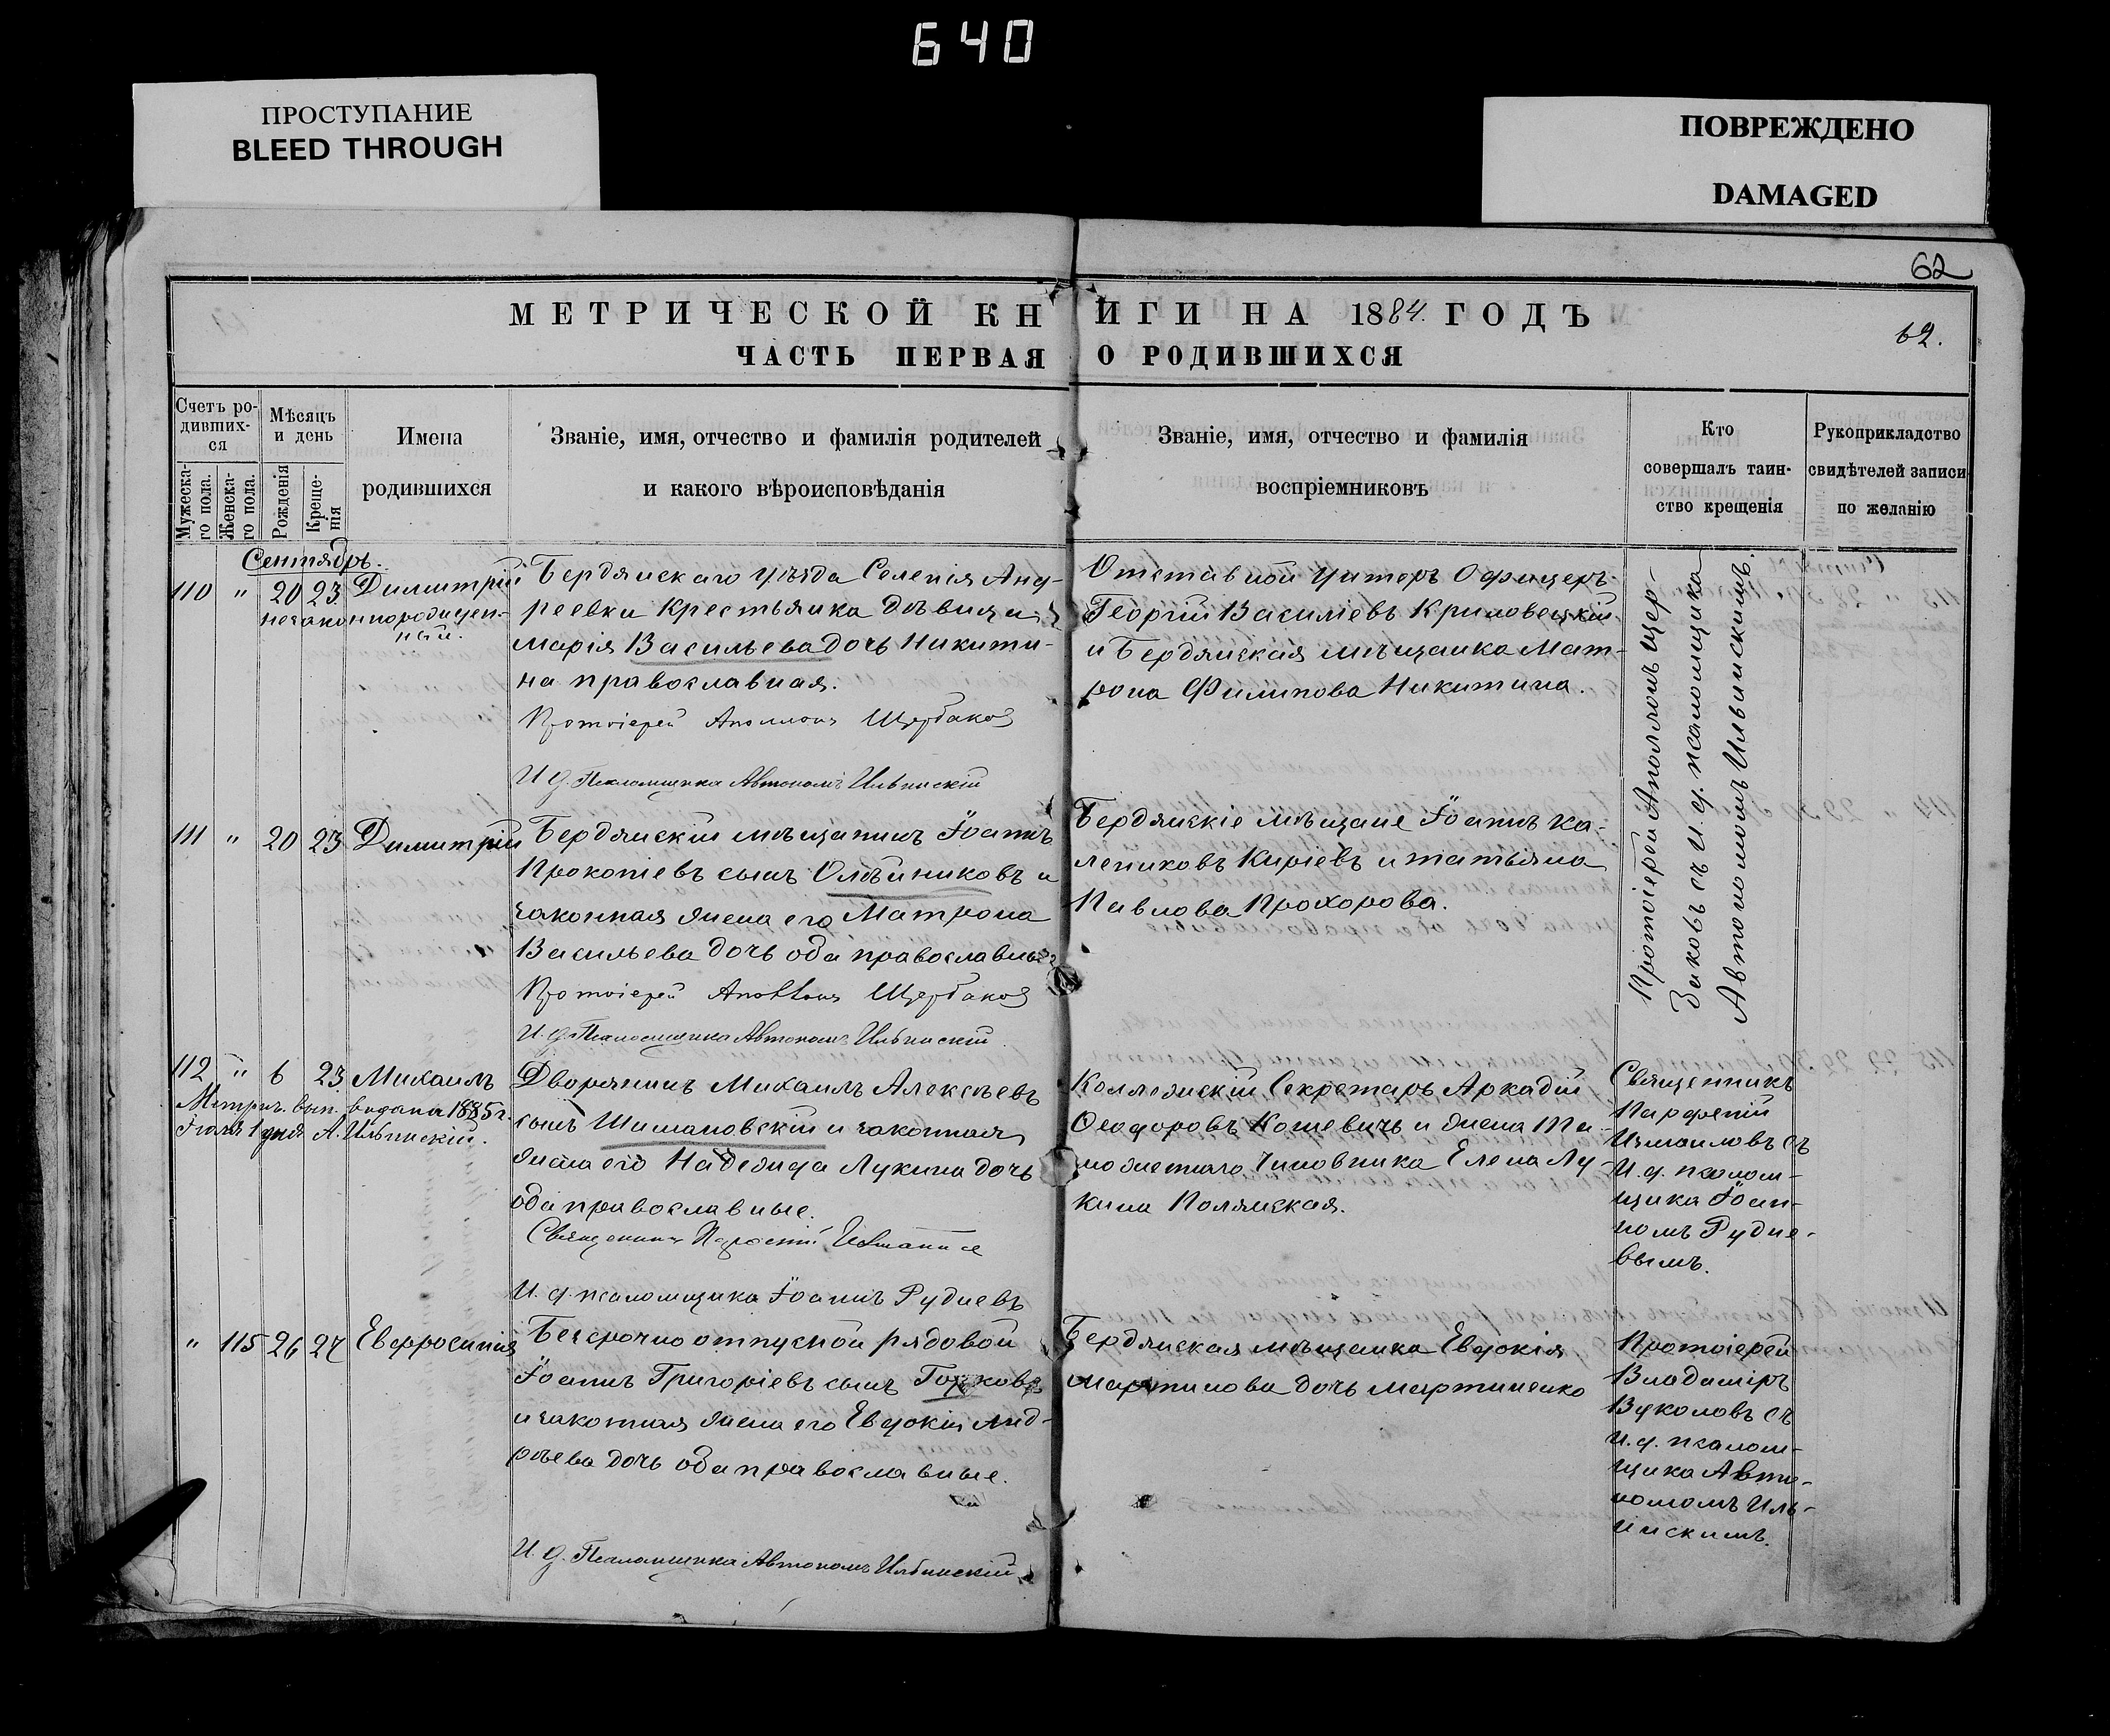 640
ПРОСТУПАНИЕ
BLEED THROUGH
ПОВРЕЖДЕНО
DAMAGED
62
МЕТРИЧЕСКОЙ КНИГИ НА 1884. ГОДЪ
62.
ЧАСТЬ ПЕРВАЯ О РОДИВШИХСЯ
Счетъ ро-
дивших-
ся
Мужеска-
го пола.
Женска-
го пола.
Мѣсяцъ
и день
Рожденія
Креще-
нія
Имена
родившихся
Званіе, имя, отчество и фамилія родителей
и какого вѣроисповѣданія
Званіе, имя, отчество и фамилія
воспріемниковъ
Кто
совершалъ таин-
ство крещенія
Рукоприкладство
свидѣтелей записи
по желанію
Сентябрь.
110 " 20 23 Димитрій
незаконнорожден-
ный.
Бердянскаго уѣзда Селенія Анд-
реевки Крестьянка дѣвица
Марія Васильева дочь Никити-
на православная.
Протоіерей Аполлонъ Щербаков
И. д. Псаломщика Автономъ Ильинскій
Отставной Унтеръ Офицеръ
Георгій Василіевъ Криловецкій
и Бердянская мѣщанка Мат-
рона Филипова Никитина.
Протоіерей Аполлонъ Щер-
баковъ съ И. д. псаломщика
Автономомъ Ильинскимъ.
111 " 20 23 Димитрій
Бердянскій мѣщанинъ Іоаннъ
Прокопіевъ сынъ Олѣйниковъ и
законная жена его Матрона
Васильева дочь оба православные
Протоіерей Аполлонъ Щербаков
И. д. Псаломщика Автономъ Ильинскій
Бердянскіе мѣщане Іоаннъ Ка-
лениковъ Киріевъ и Татьяна
Павлова Прохорова.
112 " 6 23 Михаилъ
Метрич. вып. видана 1885 г.
Іюля 1 дня А. Ильинскій.
Дворянинъ Михаилъ Алексѣевъ
сынъ Шимановскій и законная
жена его Надежда Лукина дочь
оба православные.
Священникъ Парфеній
И. д. псаломщика Іоаннъ Рудневъ
Коллежскій Секретарь Аркадій
Ѳеодоровъ Кошевичъ и жена Та-
моженнаго Чиновника Елена Лу-
кина Полянская.
Священникъ
Парфеній
Измаиловъ съ
И. д. псалом-
щика Іоан-
номъ Рудне-
вымъ.
" 115 26 27 Евфросинія
Безсрочно отпускной рядовой
Іоаннъ Григоріевъ сынъ
и законная жена его Евдокія Анд-
рѣева дочь оба православные.
И. д. Псаломщика Автономъ Ильинскій
Бердянская мѣщанка Евдокія
Мартинова дочь Мартиненко
Протоіерей
Владиміръ
Вуколовъ съ
И. д. псалом-
щика Авто-
номомъ Иль-
инскимъ.